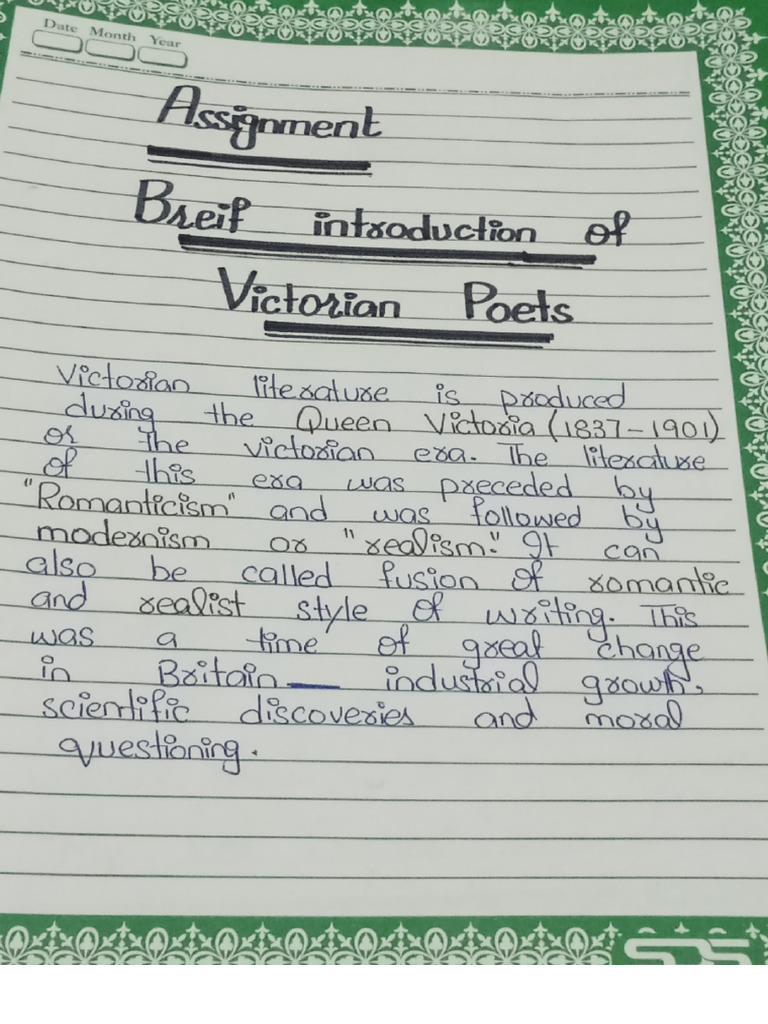 Date Month Year
Assignment
Breif introduction of
Victorian Poets
Victorian literature is produced
during the Queen Victoria (1837-1901)
or the victorian era. The literature
of this era was preceded by
"Romanticism" and was followed by
modernism or "realism." It can
also be called fusion of romantic
and realist style of writing. This
was a time of great change
in Britain — industrial growth,
scientific discoveries and moral
questioning.